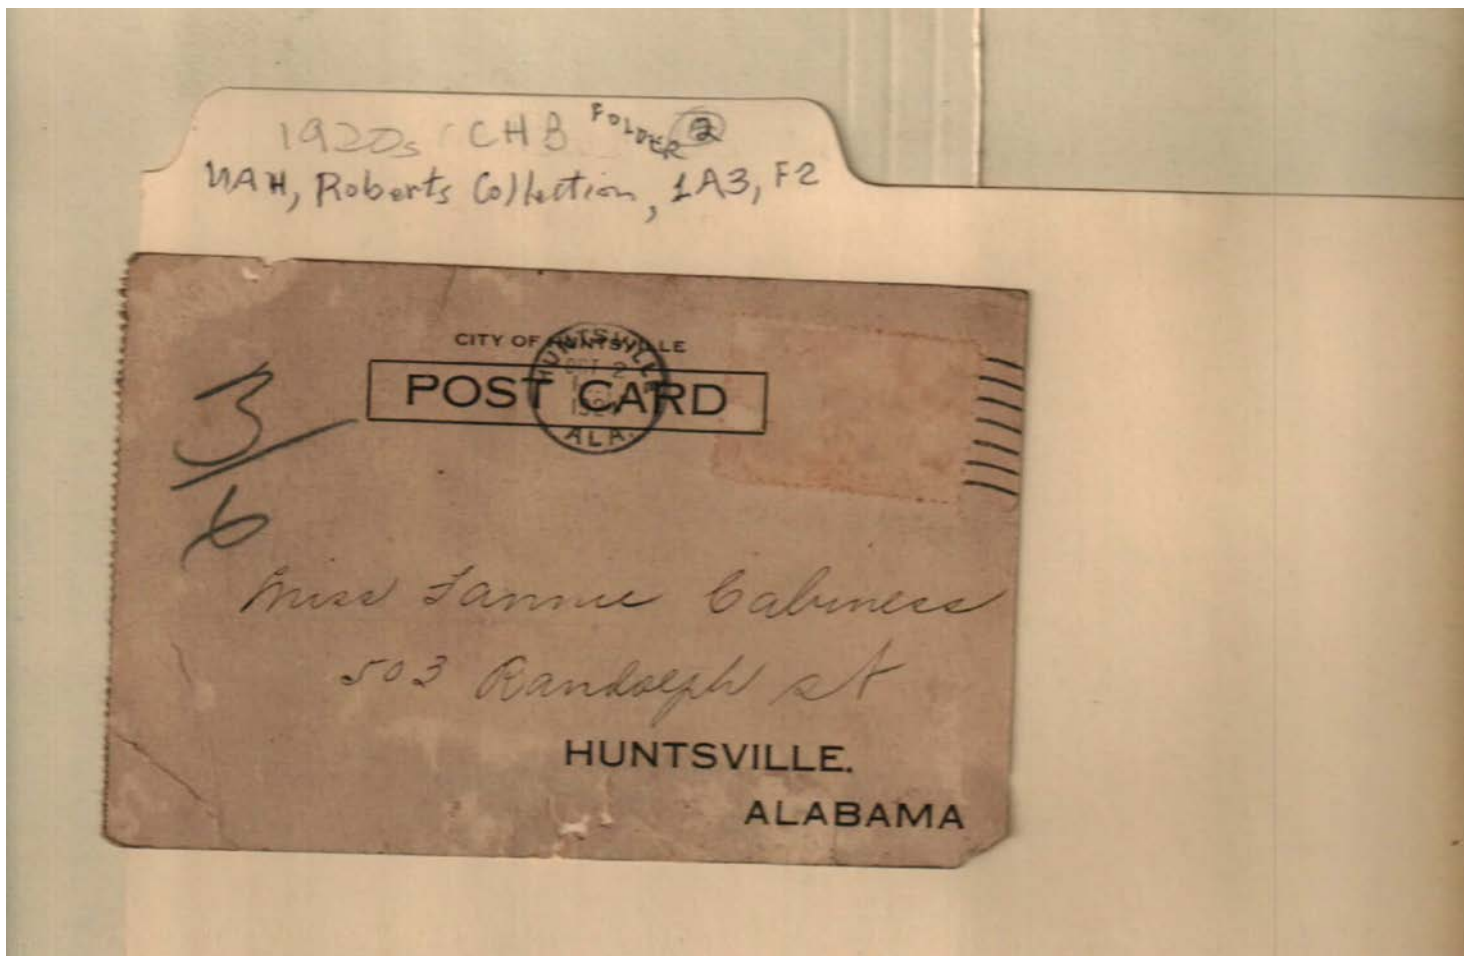 1920s CHB FOLDER 2
UAH, Roberts Collection, 1A3, F2
CITY OF HUNTSVILLE
POST CARD
HUNTSVILLE
OCT 2
ALA.
3
6
Miss Fannie Cabiness
503 Randolph st
HUNTSVILLE.
ALABAMA